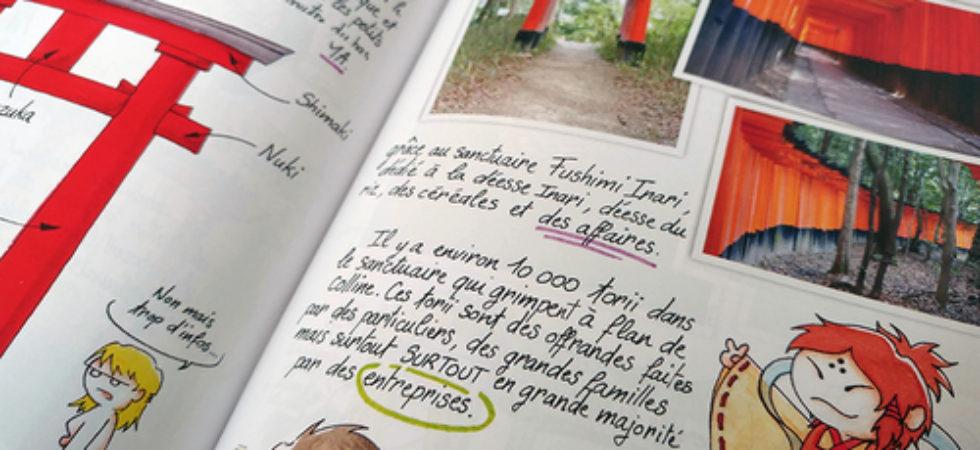 que, et
les petits
du bas,
YA
Shimaki
Nuki
Non mais
trop d'infos...
grâce au sanctuaire Fushimi Inari,
dédié à la déesse Inari, déesse du
riz, des céréales et des affaires.
Il y a environ 10 000 torii dans
le sanctuaire qui grimpent à flan de
colline. Ces torii sont des offrandes faites
par des particuliers, des grandes familles
mais surtout SURTOUT en grande majorité
par des entreprises.